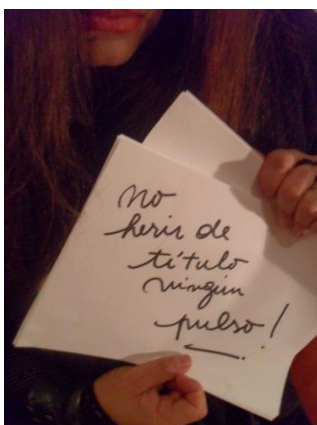 no
herir de
título
ningún
pulso!